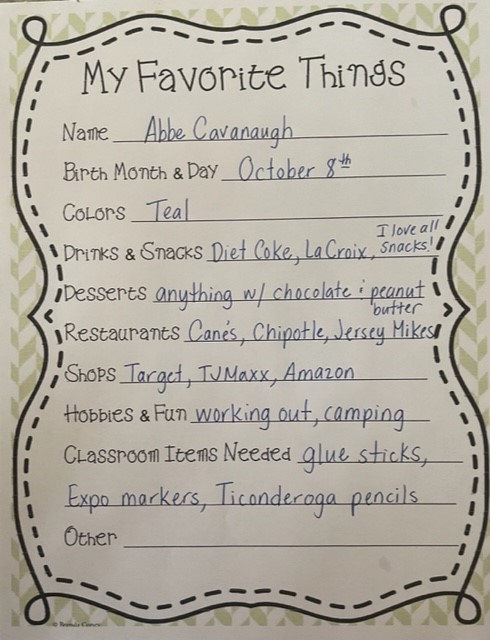 My Favorite Things
Name Abbe Cavanaugh
Birth Month & Day October 8th
Colors Teal
I love all
Drinks & Snacks Diet Coke, La Croix, snacks!
Desserts anything w/ chocolate & peanut
butter
Restaurants Cane's, Chipotle, Jersey Mikes
Shops Target, TJMaxx, Amazon
Hobbies & Fun working out, camping
Classroom Items Needed glue sticks,
Expo markers, Ticonderoga pencils
Other